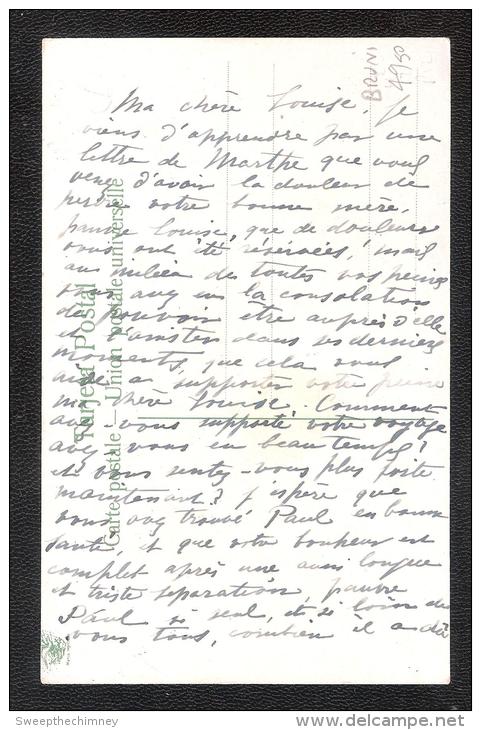 BRUNI
4950
Ma chère Louise, je
viens d'apprendre par une
lettre de Marthe que vous
venez d'avoir la douleur de
perdre votre bonne mère,
pauvre Louise, que de douleurs
vous ont été réservées! mais
au milieu de toutes vos peines
vous avez eu la consolation
de pouvoir être auprès d'elle
et d'assister dans ses derniers
moments, que cela vous
aide a supporter votre peine
ma chère Louise. Comment
avez-vous supporté votre voyage
avez-vous eu beau temps?
et vous sentez-vous plus forte
maintenant? J'espère que
vous avez trouvé Paul en bonne
santé, et que votre bonheur est
complet après une aussi longue
et triste séparation, pauvre
Paul si seul, et si loin de
vous tous, combien il a dû
Tarjeta Postal
Carte postale — Union postale universelle
delcampe.net
Sweepthechimney